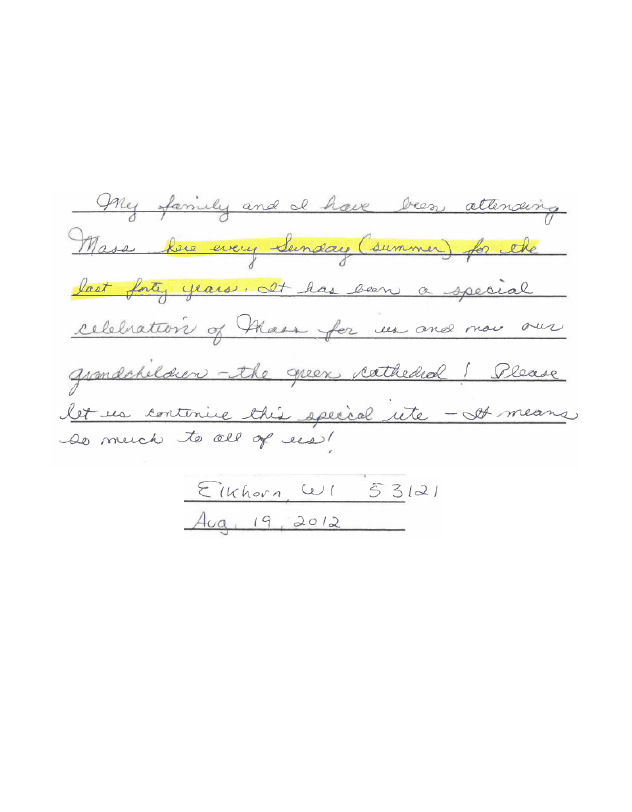 My family and I have been attending
Mass here every Sunday (summer) for the
last forty years. It has been a special
celebration of Mass for us and now our
grandchildren - the green cathedral! Please
let us continue this special rite - It means
so much to all of us!
Elkhorn, WI 53121
Aug. 19, 2012